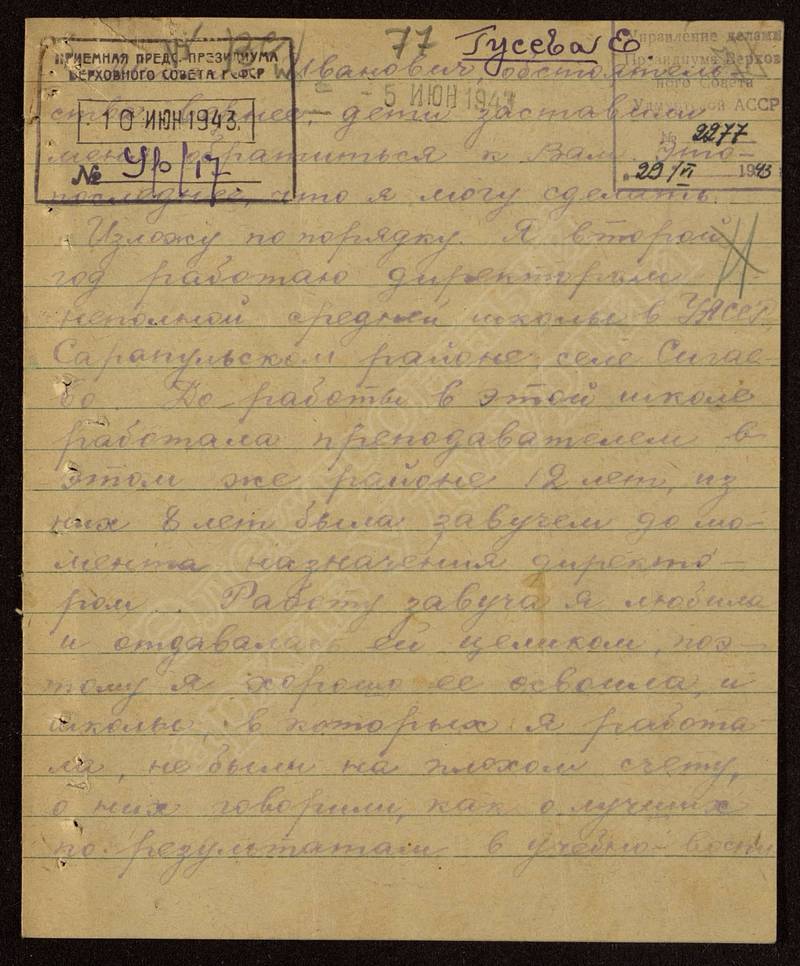 77 Гусева Е.
ПРИЕМНАЯ ПРЕДС. ПРЕЗИДИУМА
ВЕРХОВНОГО СОВЕТА РСФСР
10 ИЮН 1943
№ Ур/17
5 ИЮН 1943
Управление делами
Президиума Верхов
ного Совета
Удмуртской АССР
№ 2277
29/VI 1943
Иванович, обстоятель-
ства, дети заставили
меня обратиться к Вам. Это-
последнее, что я могу сделать.
Изложу по порядку. Я второй
год работаю директором
неполной средней школы в УАССР,
Сарапульском районе селе Сигае-
во До работы в этой школе
работала преподавателем в
этом же районе 12 лет, из
них 8 лет была завучем до мо-
мента назначения директо-
ром. Работу завуча я любила
и отдавалась ей целиком, поэ-
тому я хорошо ее освоила, и
школы, в которых я работа-
ла, не были на плохом счету,
о них говорили, как о лучших
по результатам в учебно-воспи